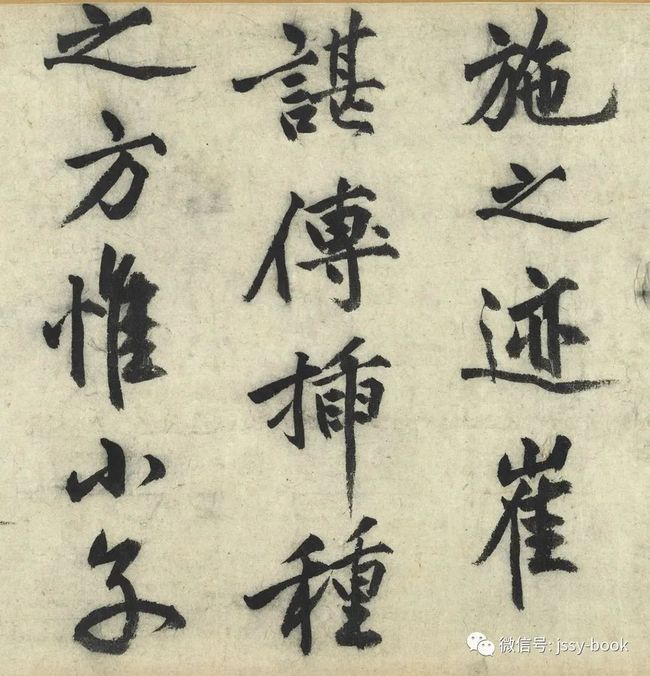 施之迹崔
諶傳插種
之方惟小子
微信号: jssy-book